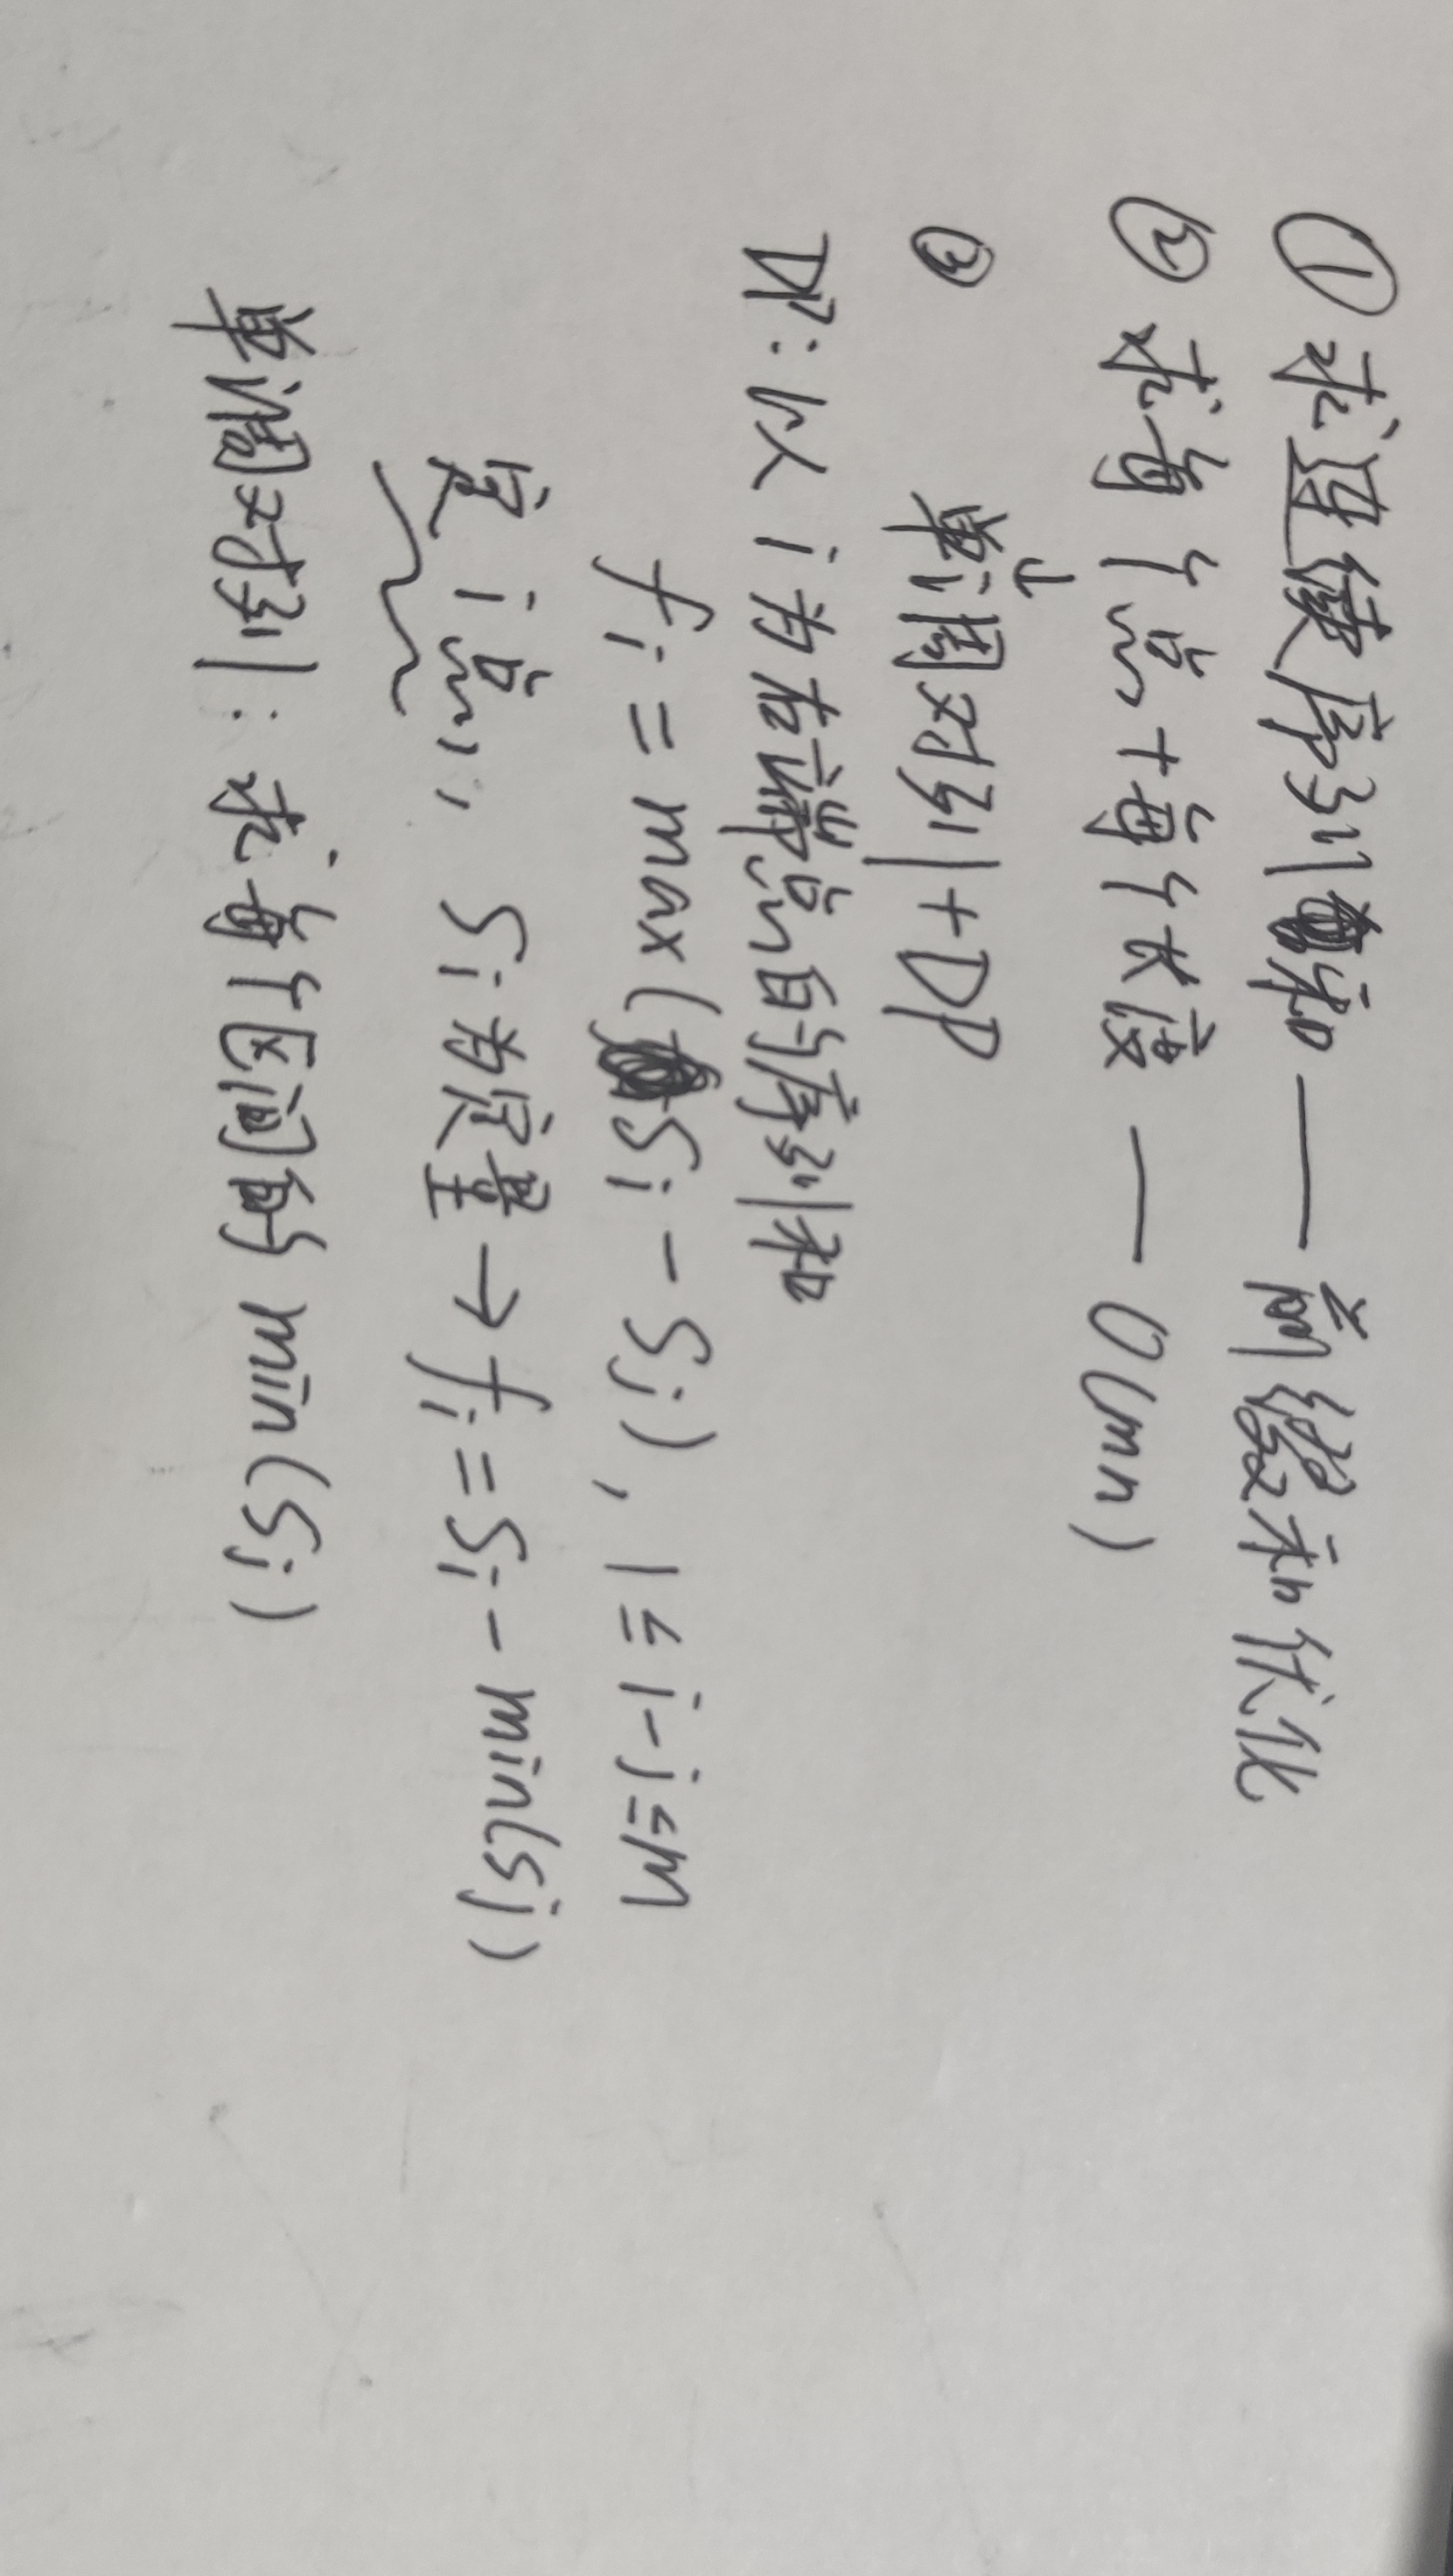 ① 求连续序列和 —— 前缀和优化
② 求每个点+每个长度 — O(mn)
↓
③ 单调对列+DP
DP: 以i为右端点的序列和
fi = max(Si - Sj), 1≤i-j≤M
定i点, Si为定量→fi=Si-min(Sj)
单调对列: 求每个区间的min(Sj)